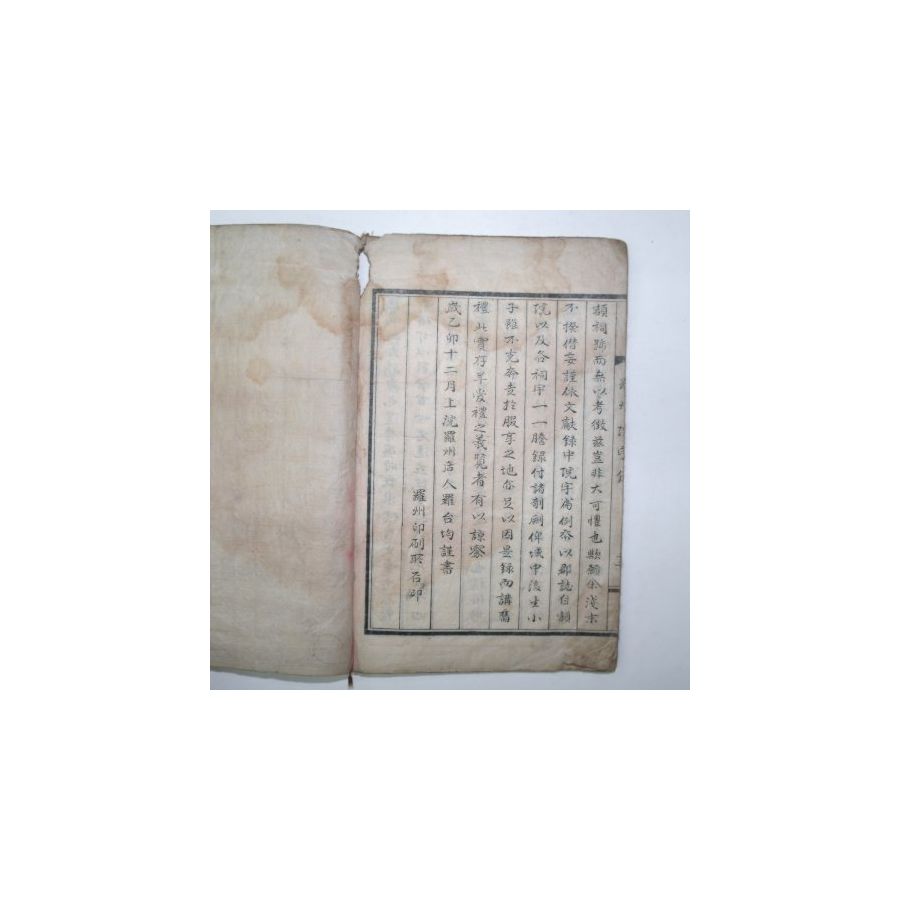 額祠號而無以考徵玆豈非大可懼也縣顧余淺末
不揆僭妄謹依文献錄中院宇篇例叅以郡誌自賴
院以及各祠宇一一謄錄付諸剞劂俾域中後生小
子雖不克奔走於服享之地
因是錄而講舊
禮此實存羊愛禮之義覽者有以諒察
歲乙卯十二月上浣羅州后人羅台均謹書
羅州印刷所石印
院宇錄